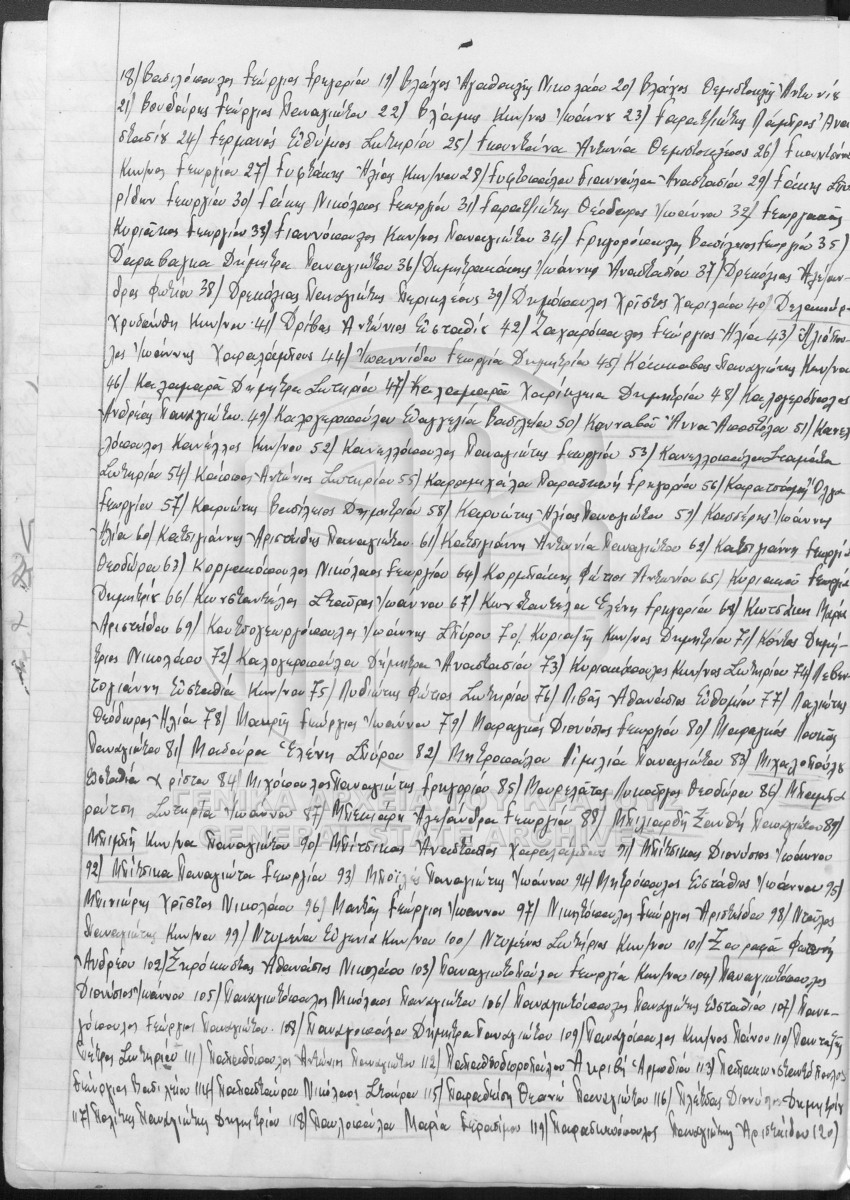 18/ Βασιλόπουλος Γεώργιος Γρηγορίου 19/ Βλάχος Ἀγαθοκλῆς Νικολάου 20/ Βλάχος Θεμιστοκλῆς Ἀντωνίου
21/ Βουδούρης Γεώργιος Παναγιώτου 22/ Βλάμης Κων/νος Ἰωάννου 23/ Γαρατζιώτης Λάμπρος Ἀνα
στασίου 24/ Γερμανός Εὐθύμιος Σωτηρίου 25/ Γκουντούνα Ἀντωνία Θεμιστοκλέους 26/ Γκουντούνας
Κων/νος Γεωργίου 27/ Γυφτάκης Ἠλίας Κων/νου 28/ Γυφτοπούλου Γιαννούλα Ἀναστασίου 29/ Γάκης Σπυ
ρίδων Γεωργίου 30/ Γάκης Νικόλαος Γεωργίου 31/ Γαρατζιώτης Θεόδωρος Ἰωάννου 32/ Γεωργακᾶς
Κυριάκος Γεωργίου 33/ Γιαννόπουλος Κων/νος Παναγιώτου 34/ Γρηγορόπουλος Βασίλειος Γεωργίου 35/
Δαραβαγκα Δήμητρα Παναγιώτου 36/ Δημητρακάκης Ἰωάννης Ἀναστασίου 37/ Δρεκόλιας Ἀλέξαν
δρος Φωτίου 38/ Δρεκόλιας Παναγιώτης Περικλέους 39/ Δημόπουλος Χρῆστος Χαριλάου 40/
Χρυσάνθη Κων/νου 41/ Δρίβας Ἀντώνιος Εὐσταθίου 42/ Ζαχαρόπουλος Γεώργιος Ἠλία 43/ Ἠλιόπου
λος Ἰωάννης Χαραλάμπους 44/ Ἰωαννίδου Γεωργία Δημητρίου 45/ Κάκκαβας Παναγιώτης Κων/νου
46/ Καλαμαρᾶ Δήμητρα Σωτηρίου 47/ Καλαμαρᾶ Χαρίκλεια Δημητρίου 48/ Καλογερόπουλος
Ἀνδρέας Παναγιώτου 49/ Καλογεροπούλου Εὐαγγελία Βασιλείου 50/ Κανναβοῦ Ἄννα Ἀποστόλου 51/ Κανελ
λόπουλος Κανέλλος Κων/νου 52/ Κανελλόπουλος Παναγιώτης Γεωργίου 53/ Κανελλοπούλου Σταματα
Σωτηρίου 54/ Ἀντώνιος Σωτηρίου 55/ Καραμιχάλου Παρασκευή Γρηγορίου 56/ Ὄλγα
Γεωργίου 57/ Καρυώτης Βασίλειος Δημητρίου 58/ Καρυώτης Ἠλίας Παναγιώτου 59/ Κασσέρης Ἰωάννης
Ἠλία 60/ Κατσιγιάννης Ἀριστείδης Παναγιώτου 61/ Κατσιγιάννη Ἀντωνία Παναγιώτου 62/ Κατσιγιάννη Γεωργία
Θεοδώρου 63/ Κορμακόπουλος Νικόλαος Γεωργίου 64/ Κορμπάκης Φώτιος Ἀντωνίου 65/ Κυριακοῦ Γεωργία
Δημητρίου 66/ Κωνσταντέλος Σταῦρος Ἰωάννου 67/ Κωνσταντέλου Ἑλένη Γρηγορίου 68/ Κωτσάκη Μαρία
Ἀριστείδου 69/ Κουτσογεωργόπουλος Ἰωάννης Σπύρου 70/ Κυριαζῆς Κων/νος Δημητρίου 71/ Κόντος Δημή
τριος Νικολάου 72/ Καλογεροπούλου Δήμητρα Ἀναστασίου 73/ Κυριακόπουλος Κων/νος Σωτηρίου 74/ Λεβεν
τογιάννη Εὐσταθία Κων/νου 75/ Λυδιώτης Φώτιος Σωτηρίου 76/ Λιβᾶς Ἀθανάσιος Εὐθυμίου 77/ Λαλιώτης
Θεόδωρος Ἠλία 78/ Μακρῆς Γεώργιος Ἰωάννου 79/ Μαραγκός Διονύσιος Γεωργίου 80/ Μαραγκός
Παναγιώτου 81/ Μαδούρα Ἑλένη Σπύρου 82/ Μητροπούλου Αἰμιλία Παναγιώτου 83/ Μιχαλοπούλου
Εὐσταθία Χρίστου 84/ Μιχόπουλος Παναγιώτης Γρηγορίου 85/ Μουρελάτος Λυκοῦργος Θεοδώρου 86/
Σωτηρία Ἰωάννου 87/ Μπεκιάρη Ἀλεξάνδρα Γεωργίου 88/ Μπιλιαρδῆ Ξανθή Παναγιώτου 89/
Κων/να Παναγιώτου 90/ Μπίτσικας Ἀναστάσιος Χαραλάμπους 91/ Μπίτσικας Διονύσιος Ἰωάννου
92/ Μπίτσικα Παναγιώτα Γεωργίου 93/ Παναγιώτης Ἰωάννου 94/ Μητρόπουλος Εὐστάθιος Ἰωάννου 95/
Μπινιώρης Χρῆστος Νικολάου 96/ Μαντᾶς Γεώργιος Ἰωάννου 97/ Νικητόπουλος Γεώργιος Ἀριστείδου 98/ Ντοῦλος
Παναγιώτης Κων/νου 99/ Ντυμένου Εὐγενία Κων/νου 100/ Ντυμένος Σωτήριος Κων/νου 101/ Ζουραφᾶ Φωτεινή
Ἀνδρέου 102/ Ξηρόκωστας Ἀθανάσιος Νικολάου 103/ Παναγιωτοπούλου Γεωργία Κων/νου 104/ Παναγιωτόπουλος
Διονύσιος Ἰωάννου 105/ Παναγιωτόπουλος Νικόλαος Παναγιώτου 106/ Παναγιωτόπουλος Παναγιώτης Εὐσταθίου 107/ Πανα
γόπουλος Γεώργιος Παναγιώτου 108/ Παναγοπούλου Δήμητρα Παναγιώτου 109/ Παναγόπουλος Κων/νος Πάνου 110/ Πανταζῆς
Πέτρος Σωτηρίου 111/ Παπαδόπουλος Ἀντώνιος Παναγιώτου 112/ Παπαθεοδωροπούλου Ἀκριβή Ἁρμοδίου 113/ Παπακωνσταντόπουλος
Γεώργιος Βασιλείου 114/ Παπασταύρου Νικόλαος Σταύρου 115/ Παραδείση Θεανώ Παναγιώτου 116/ Πλέσσας Διονύσιος Δημητρίου
117/ Πολίτης Παναγιώτης Δημητρίου 118/ Παυλοπούλου Μαρία Γερασίμου 119/ Παρασκευόπουλος Παναγιώτης Ἀριστείδου 120/
ΓΕΝΙΚΑ ΑΡΧΕΙΑ ΤΟΥ ΚΡΑΤΟΥΣ
GENERAL STATE ARCHIVES